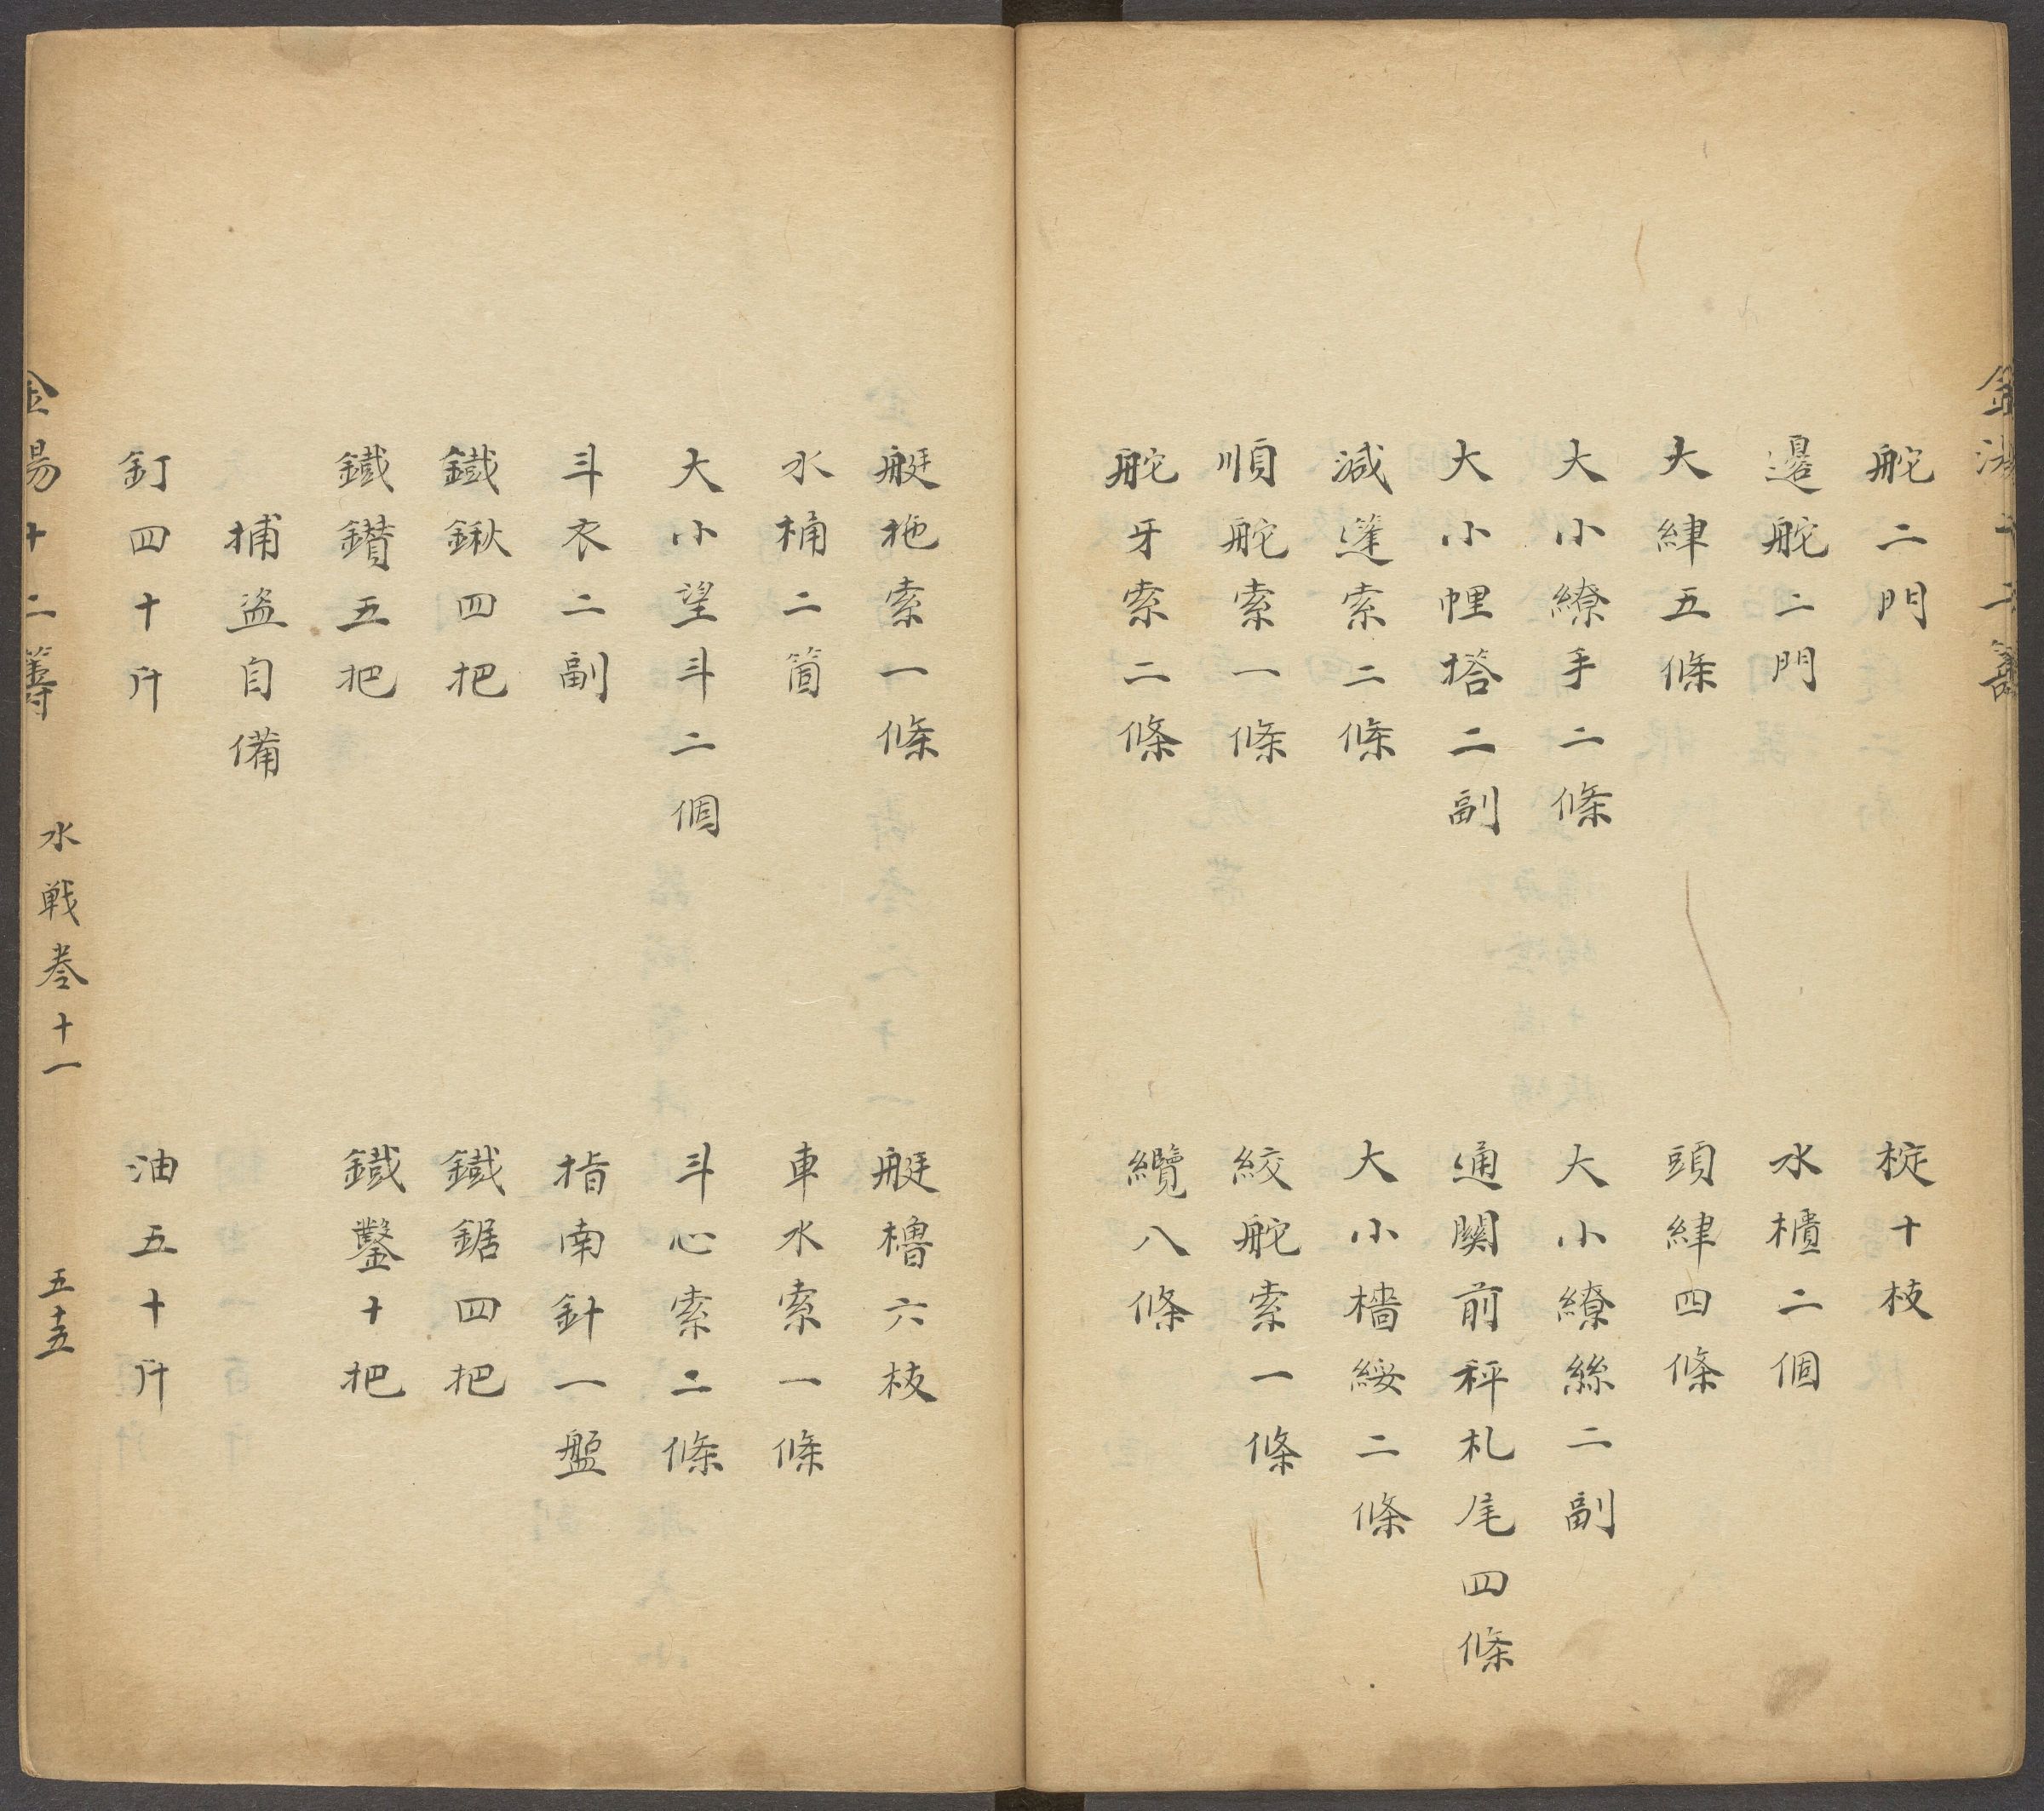 舵二門 椗十枝
邉舵二門 水櫃二個
大繂五條 頭繂四條
大小繚手二條 大小繚絲二副
大小㡵塔二副 通関前秤札尾四條
減篷索二條 大小檣綏二條
順舵索一條 絞舵索一條
舵牙索二條 纜八條
艇拖索一條 艇櫓六枝
水桶二箇 車水索一條
大小望斗二個 斗心索二條
斗衣二副 指南針一盤
鐵鍬四把 鐵鋸四把
鐵鑚五把 鐵鑿十把
捕盗自備
釘四十斤 油五十斤
金湯十二籌 水戦巻十一 五十五